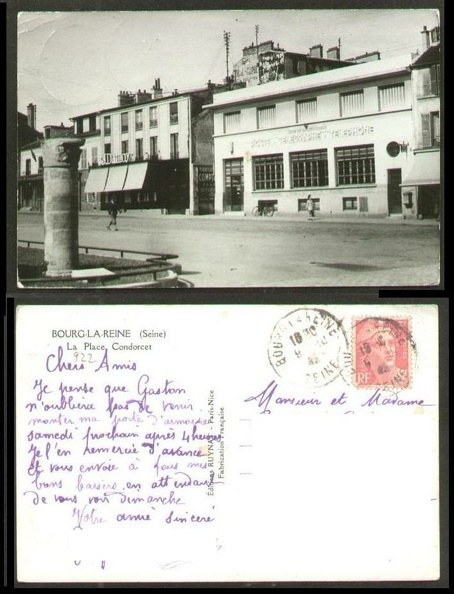 POSTE - TELEGRAPHE - TELEPHONE
BOURG-LA-REINE (Seine)
La Place Condorcet
922
Chers Amis
Je pense que Gaston
n'oubliera pas de venir
monter ma porte d'armoire
samedi prochain après 4 heures
Je l'en remercie d'avance
et vous envoie à tous mes
bons baisers en attendant
de vous voir dimanche
Votre amie sincère
Editions RUYNAT - Paris-Nice
Fabrication Française
BOURG LA REINE
18 30
SEINE
RF
Monsieur et Madame